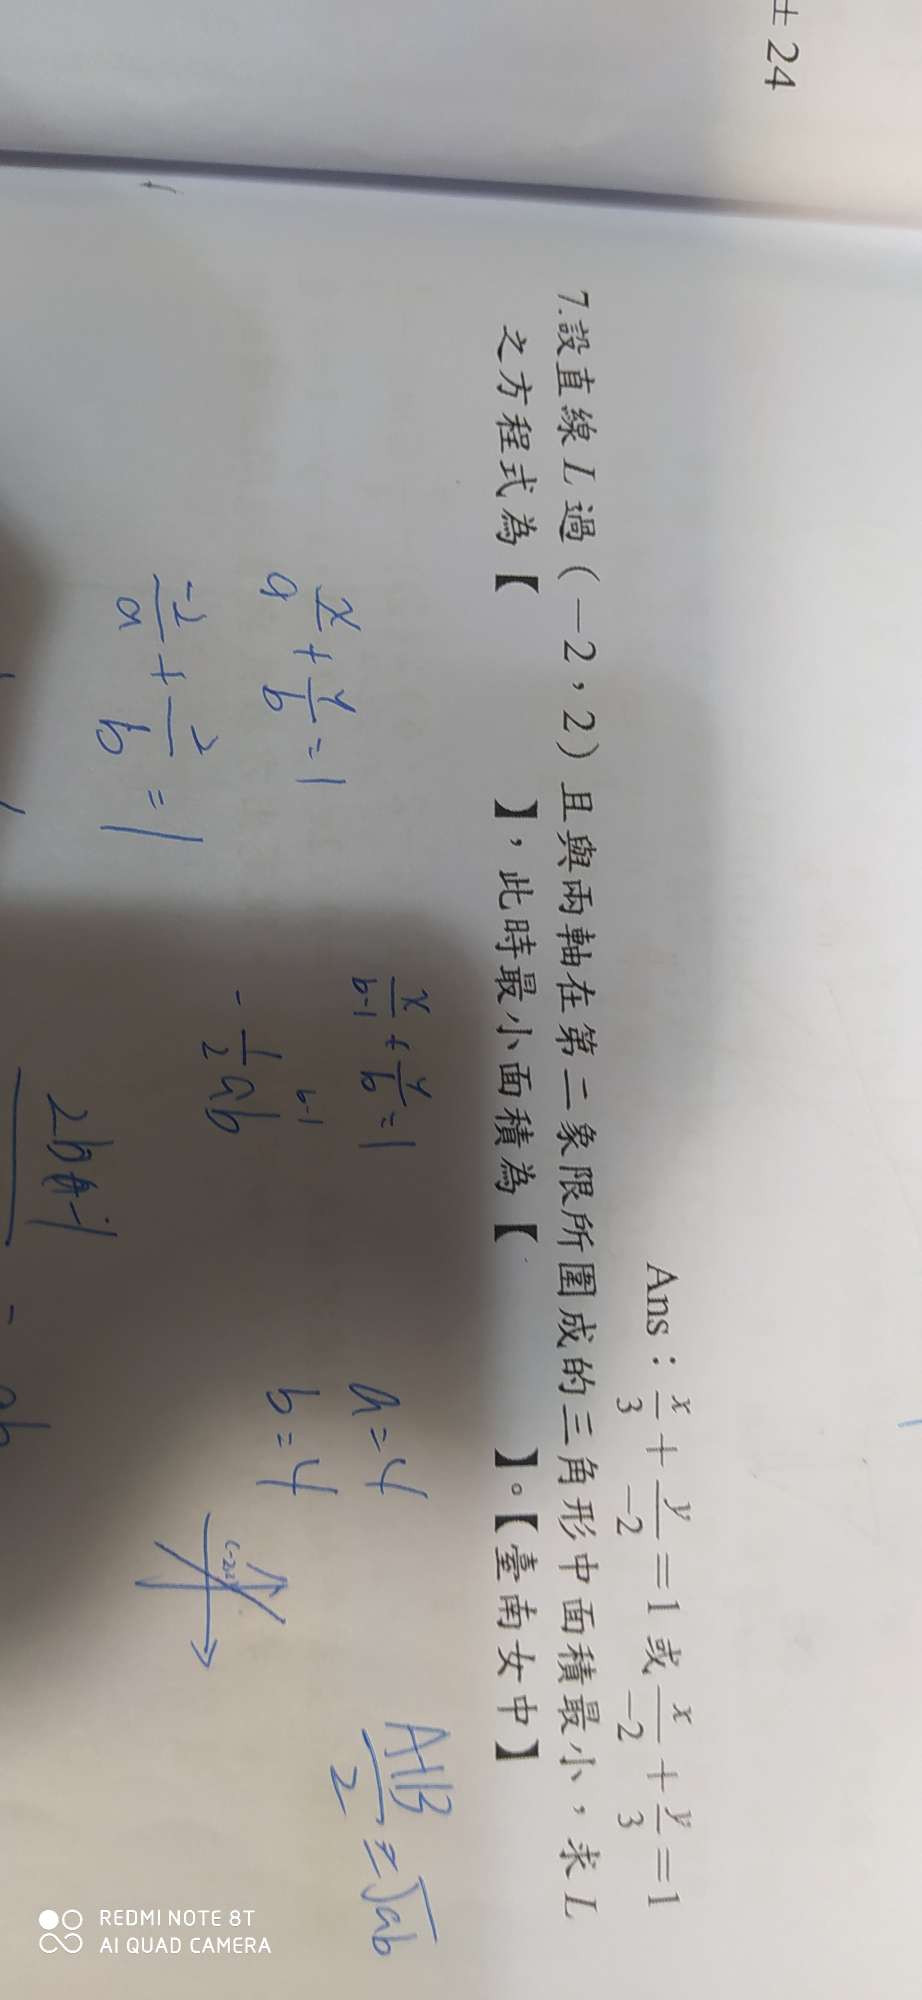 ± 24
Ans：x/3 + y/-2 = 1 或 x/-2 + y/3 = 1
7.設直線 L 過（-2，2）且與兩軸在第二象限所圍成的三角形中面積最小，求 L
之方程式為【　　　】，此時最小面積為【　　　】。【臺南女中】
x/a + y/b = 1
-2/a + 2/b = 1
x/b-1 + y/b = 1
b-1
- 1/2 ab
a = 4
b = 4
(-2,2)
A+B/2 ≥ √ab
REDMI NOTE 8T
AI QUAD CAMERA